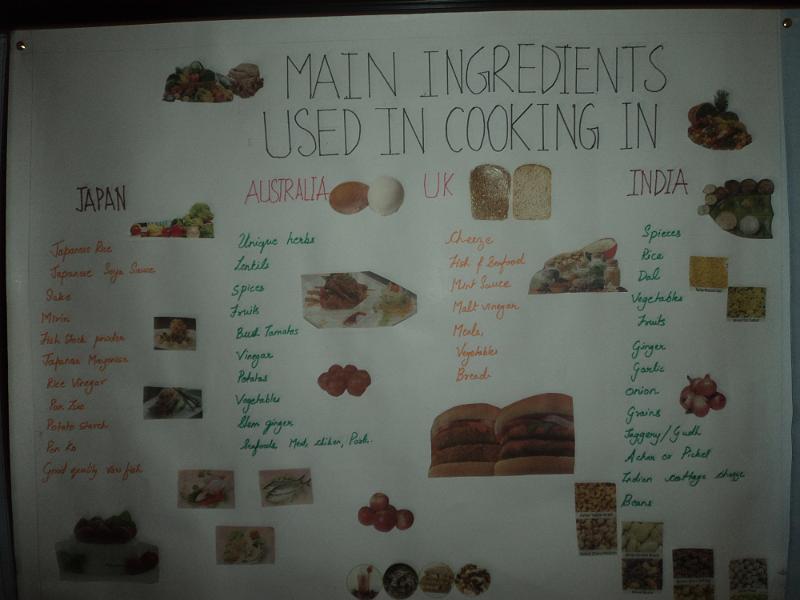 MAIN INGREDIENTS
USED IN COOKING IN
JAPAN
Japanese Rice
Japanese Soya Sauce
Sake
Mirin
Fish Stock powder
Japanese Mayonise
Rice Vinegar
Pon Zuo
Potato starch
Pon Ko
Good quality raw fish
AUSTRALIA
Unique herbs
Lentils
Spices
Fruits
Bush Tomatos
Vinegar
Potatos
Vegetables
Stem ginger
Seafoods, Meat, chiken, Pork.
UK
Cheeze
Fish & Seafood
Mint Sauce
Malt vinegar
Meals,
Vegetables
Bread
INDIA
Spieces
Rice
Dal
Vegetables
Fruits
Ginger
Garlic
onion
Grains
Jaggery/Gudh
Achar or Pickel
Indian cottage cheeze
Beans